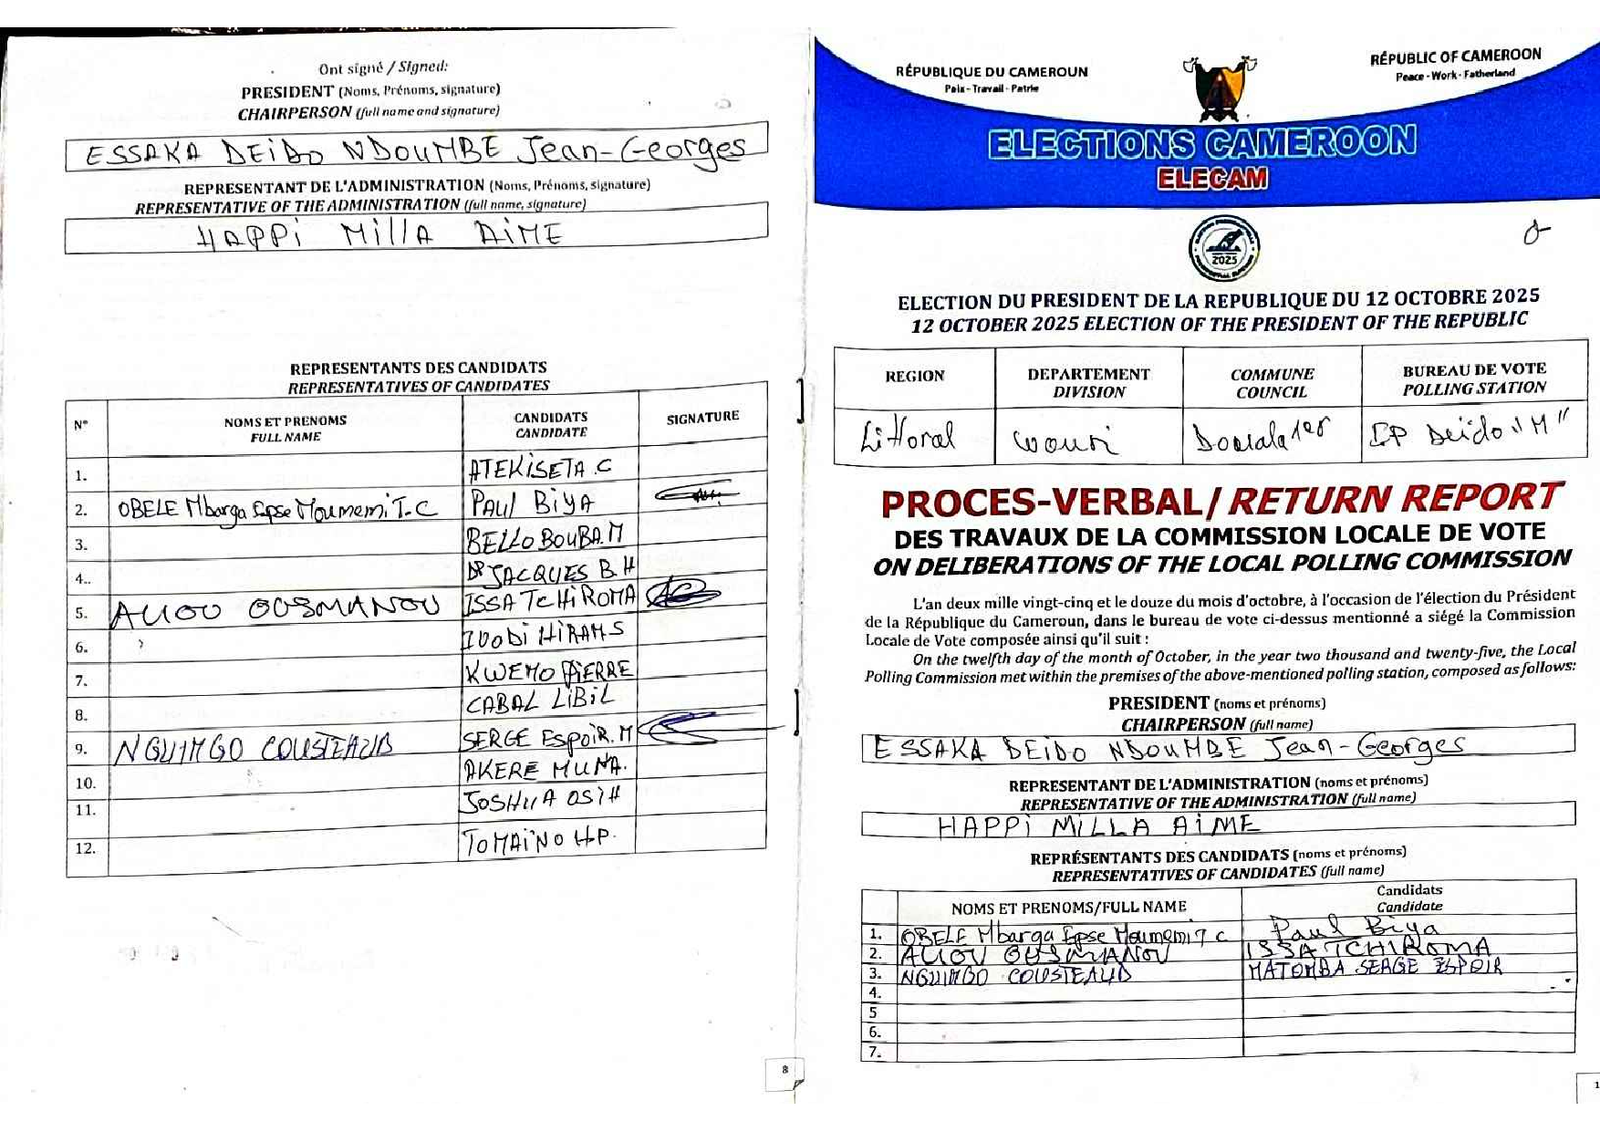 Ont signé / Signed:
PRESIDENT (Noms, Prénoms, signature)
CHAIRPERSON (full name and signature)
ESSAKA DEIDO NDOUMBE Jean-Georges
REPRESENTANT DE L'ADMINISTRATION (Noms, Prénoms, signature)
REPRESENTATIVE OF THE ADMINISTRATION (full name, signature)
HAPPI MILLA AIME
REPRESENTANTS DES CANDIDATS
REPRESENTATIVES OF CANDIDATES
N° NOMS ET PRENOMS FULL NAME CANDIDATS CANDIDATE SIGNATURE
1. ATEKI SETA.C
2. OBELE Mbarga Epse Moumemi T.C PAUL BIYA
3. BELLO BOUBA.M
4.. DR JACQUES B.H
5. ALIOU OUSMANOU ISSA TCHIROMA
6. IYODI HIRAMS
7. KWEMO PIERRE
8. CABAL LIBIL
9. NGUIMGO COUSTEAUD SERGE ESPOIR.M
10. AKERE MUNA.
11. JOSHUA OSIH
12. TOMAINO H.P.
8
RÉPUBLIQUE DU CAMEROUN
Paix - Travail - Patrie
RÉPUBLIC OF CAMEROON
Peace - Work - Fatherland
ELECTIONS CAMEROON
ELECAM
2025
ELECTION DU PRESIDENT DE LA REPUBLIQUE DU 12 OCTOBRE 2025
12 OCTOBER 2025 ELECTION OF THE PRESIDENT OF THE REPUBLIC
REGION DEPARTEMENT DIVISION COMMUNE COUNCIL BUREAU DE VOTE POLLING STATION
Littoral Wouri Douala 1er EP Deido "M"
PROCES-VERBAL/ RETURN REPORT
DES TRAVAUX DE LA COMMISSION LOCALE DE VOTE
ON DELIBERATIONS OF THE LOCAL POLLING COMMISSION
L'an deux mille vingt-cinq et le douze du mois d'octobre, à l'occasion de l'élection du Président
de la République du Cameroun, dans le bureau de vote ci-dessus mentionné a siégé la Commission
Locale de Vote composée ainsi qu'il suit :
On the twelfth day of the month of October, in the year two thousand and twenty-five, the Local
Polling Commission met within the premises of the above-mentioned polling station, composed as follows:
PRESIDENT (noms et prénoms)
CHAIRPERSON (full name)
ESSAKA DEIDO NDOUMBE Jean-Georges
REPRESENTANT DE L'ADMINISTRATION (noms et prénoms)
REPRESENTATIVE OF THE ADMINISTRATION (full name)
HAPPI MILLA AIME
REPRÉSENTANTS DES CANDIDATS (noms et prénoms)
REPRESENTATIVES OF CANDIDATES (full name)
NOMS ET PRENOMS/FULL NAME Candidats Candidate
1. OBELE Mbarga Epse Moumemi T C Paul Biya
2. ALIOU OUSMANOU ISSA TCHIROMA
3. NGUIMGO COUSTEAUD MATOMBA SERGE ESPOIR
4.
5
6.
7.
1